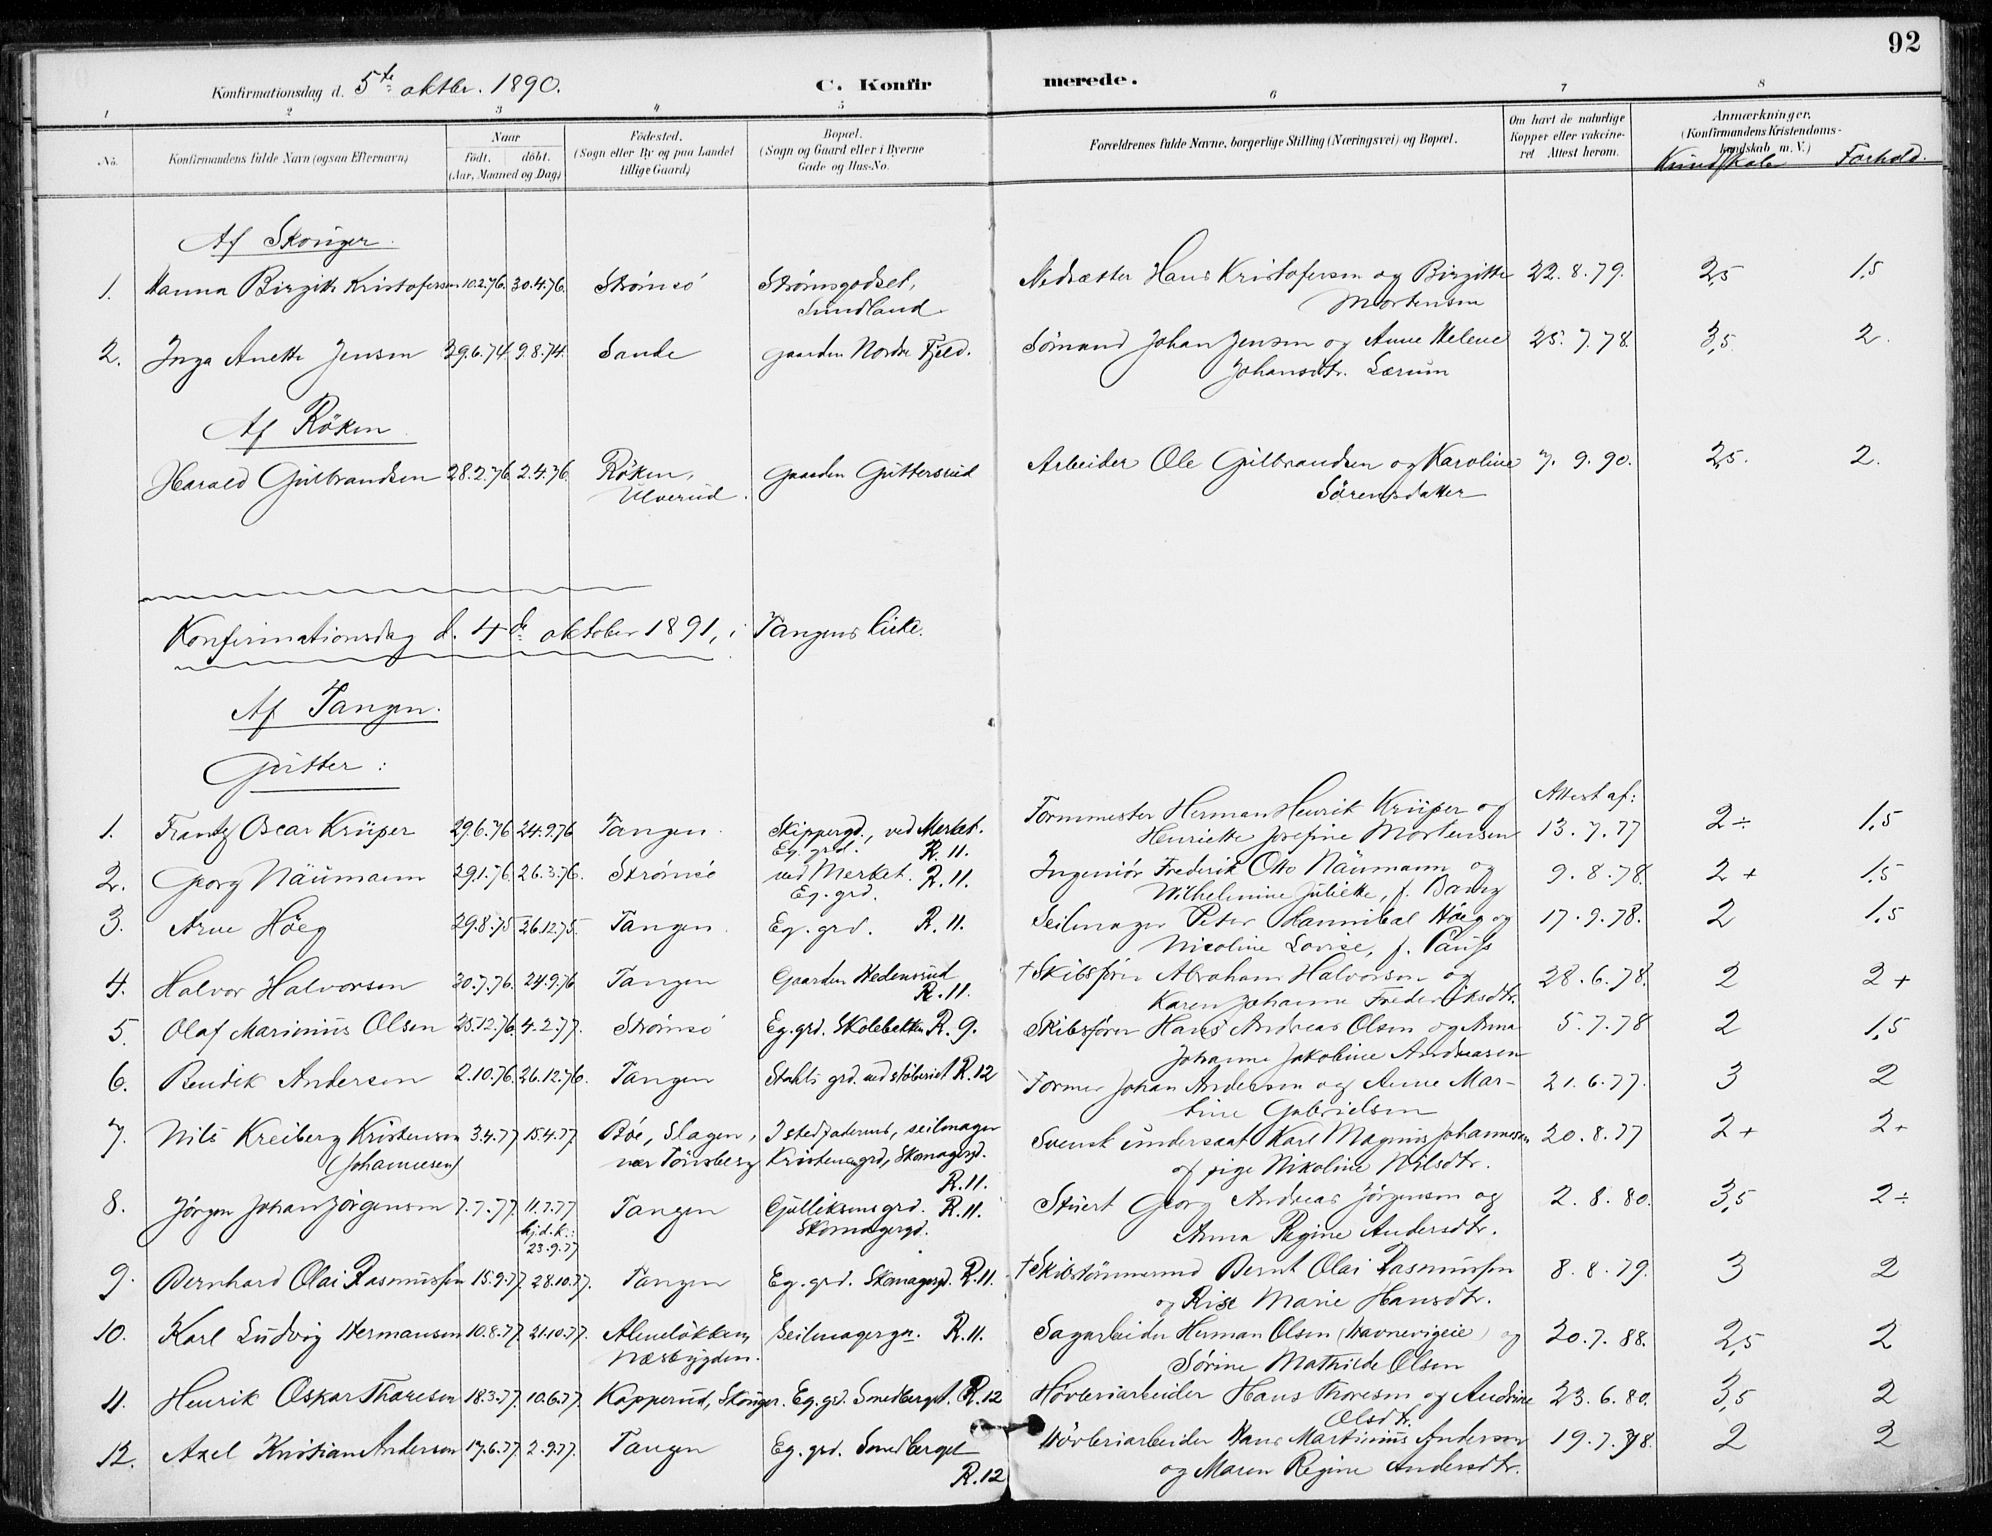 92
Konfirmationsdag d. 5te oktbr. 1890. C. Konfirmerede.
1 2 3 4 5 6 7 8
No. Konfirmandens fulde Navn (ogsaa Efternavn) Naar födt. döbt. (Aar, Maaned og Dag) Födested. (Sogn eller By og paa Landet tillige Gaard) Bopæl. (Sogn og Gaard eller i Byerne Gade og Hus-No. Forældrenes fulde Navne, borgerlige Stilling (Næringsvei) og Bopæl. Om havt de naturlige Kopper eller vakcineret Attest herom. Anmærkninger. (Konfirmandens Kristendomskundskab m. V.) Kundskab Forhold.
Af Skouger.
1. Hanna Birgitte Kristofersen 10.2.76. 30.4.76. Strømsö Strömsgodset, Nedsætter Hans Kristofersen og Birgitte 22.8.79. 2,5 1,5
Sundland. Mortensen
2. Inga Anette Jensen 29.6.74 9.8.74. Sande gaarden Nordre Fjeld. Sömand Johan Jensen og Anne Helene 25.7.78. 3,5 2.
Johansdtr. Lærum
Af Röken
Harald Gulbrandsen 28.2.76. 2.4.76. Röken, gaarden Guttersrud Arbeider Ole Gulbrandsen og Karoline 7.9.90. 2,5. 2.
Ulverud. Sörensdatter
Konfirmationsdag d. 4de oktober 1891, i Tangens kirke.
Af Tangen.
Gutter:
1. Frantz Oscar Krüper 29.6.76 24.9.76 Tangen. Skippergd., ved Merket. Formmester Herman Henrik Krüper og Attest af: 2÷ 1,5
Eg. grd. R.11. Henriette Josefine Mortensen 13.7.77
2. Georg Naumann 29.1.76. 26.3.76. Strømsö ved Merket. R.11. Ingeniör Frederik Otto Naumann og 9.8.78. 2+ 1,5
Eg. grd. Vilhelmine Juliette, f.
3. Arne Höeg 29.8.75 26.12.75. Tangen. Eg. grd. R.11. Seilmager Peter Hannibal Höeg og 17.9.78. 2 1,5
Nicoline Lovise, f. Paus
4. Halvor Halvorsen 20.7.76. 24.9.76 Tangen Gaarden Hedensrud † Skibsförer Abraham Halvorsen og 28.6.78. 2 2+
R.11. Karen Johanne Frederiksdtr.
5. Olaf Marinius Olsen 25.12.76. 4.2.77. Strømsö Eg. grd. Skolebakken R.9. Skibsförer Hans Andreas Olsen og Anna 5.7.78 2 1,5
Johanne Jakobine Andreasen
6. Bendik Andersen 2.10.76. 26.12.76. Tangen Stahls grd. ved stöberiet R.12 Former Johan Andersen og Anne Mar- 21.6.77. 3 2
tine Gabrielsen
7. Nils Kreiberg Kristensen 3.4.77 15.4.77 Böe, Slagen, I stedfaderens, seilmager Svensk undersaat Karl Magnus Johannesen 20.8.77 2+ 2+
(Johannesen) nær Tönsberg Kristensens grd, Skomagergd. og pige Nikoline Nilsdtr.
R.11.
8. Jörgen Johan Jörgensen 7.7.77. 11.7.77 Tangen Gulliksens grd. R.11. Stuert Georg Andreas Jörgensen og 2.8.80. 3,5 2÷
hj.d. k.: Skomagergd. Anna Regine Andersdtr.
23.9.77
9. Bernhard Olai Rasmussen 15.9.77. 28.10.77. Tangen Eg. grd. Skomagergd. R.11. † Skibstömmermd Bernt Olai Rasmussen 8.8.79. 3 2
og Rise Marie Hansdtr.
10. Karl Ludvig Hermansen 10.8.77. 21.10.77. Alunlökken, Seilmagergn. R.11. Sagarbeider Herman Olsen (Havnevigeie) og 20.7.88. 2,5 2
Næsbygden. Sörine Mathilde Olsen
11. Henrik Oskar Thoresen 18.3.77. 10.6.77. Kopperud, Skouger. Eg. gd. Smedberget. R.12 Hövleriarbeider Hans Thoresen og Andrine 23.6.80. 3,5 2
Olsdtr.
12. Axel Kristian Andersen 17.6.77. 2.9.77. Tangen Eg. grd. Smedberget Hövleriarbeider Hans Martinius Andersen 19.7.78. 2 2
R.12 og Maren Regine Andersdtr.